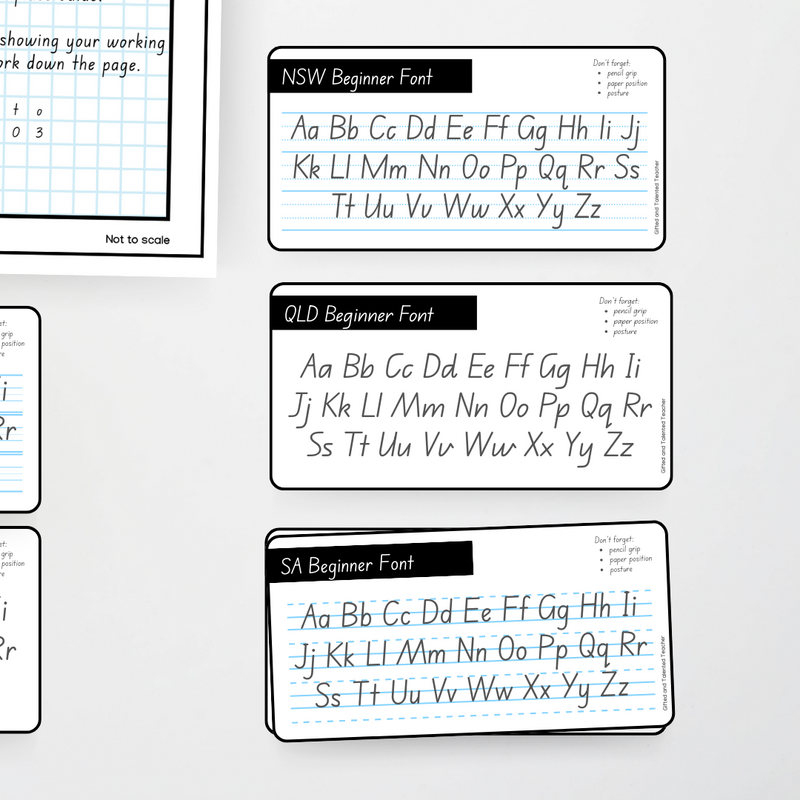 showing your working
ork down the page.
t o
0 3
Not to scale
NSW Beginner Font
Don't forget:
• pencil grip
• paper position
• posture
Aa Bb Cc Dd Ee Ff Gg Hh Ii Jj
Kk Ll Mm Nn Oo Pp Qq Rr Ss
Tt Uu Vv Ww Xx Yy Zz
Gifted and Talented Teacher
QLD Beginner Font
Don't forget:
• pencil grip
• paper position
• posture
Aa Bb Cc Dd Ee Ff Gg Hh Ii
Jj Kk Ll Mm Nn Oo Pp Qq Rr
Ss Tt Uu Vv Ww Xx Yy Zz
Gifted and Talented Teacher
SA Beginner Font
Don't forget:
• pencil grip
• paper position
• posture
Aa Bb Cc Dd Ee Ff Gg Hh Ii
Jj Kk Ll Mm Nn Oo Pp Qq Rr
Ss Tt Uu Vv Ww Xx Yy Zz
Gifted and Talented Teacher
et:
grip
position
re
i
Rr
et:
grip
position
re
i
Rr